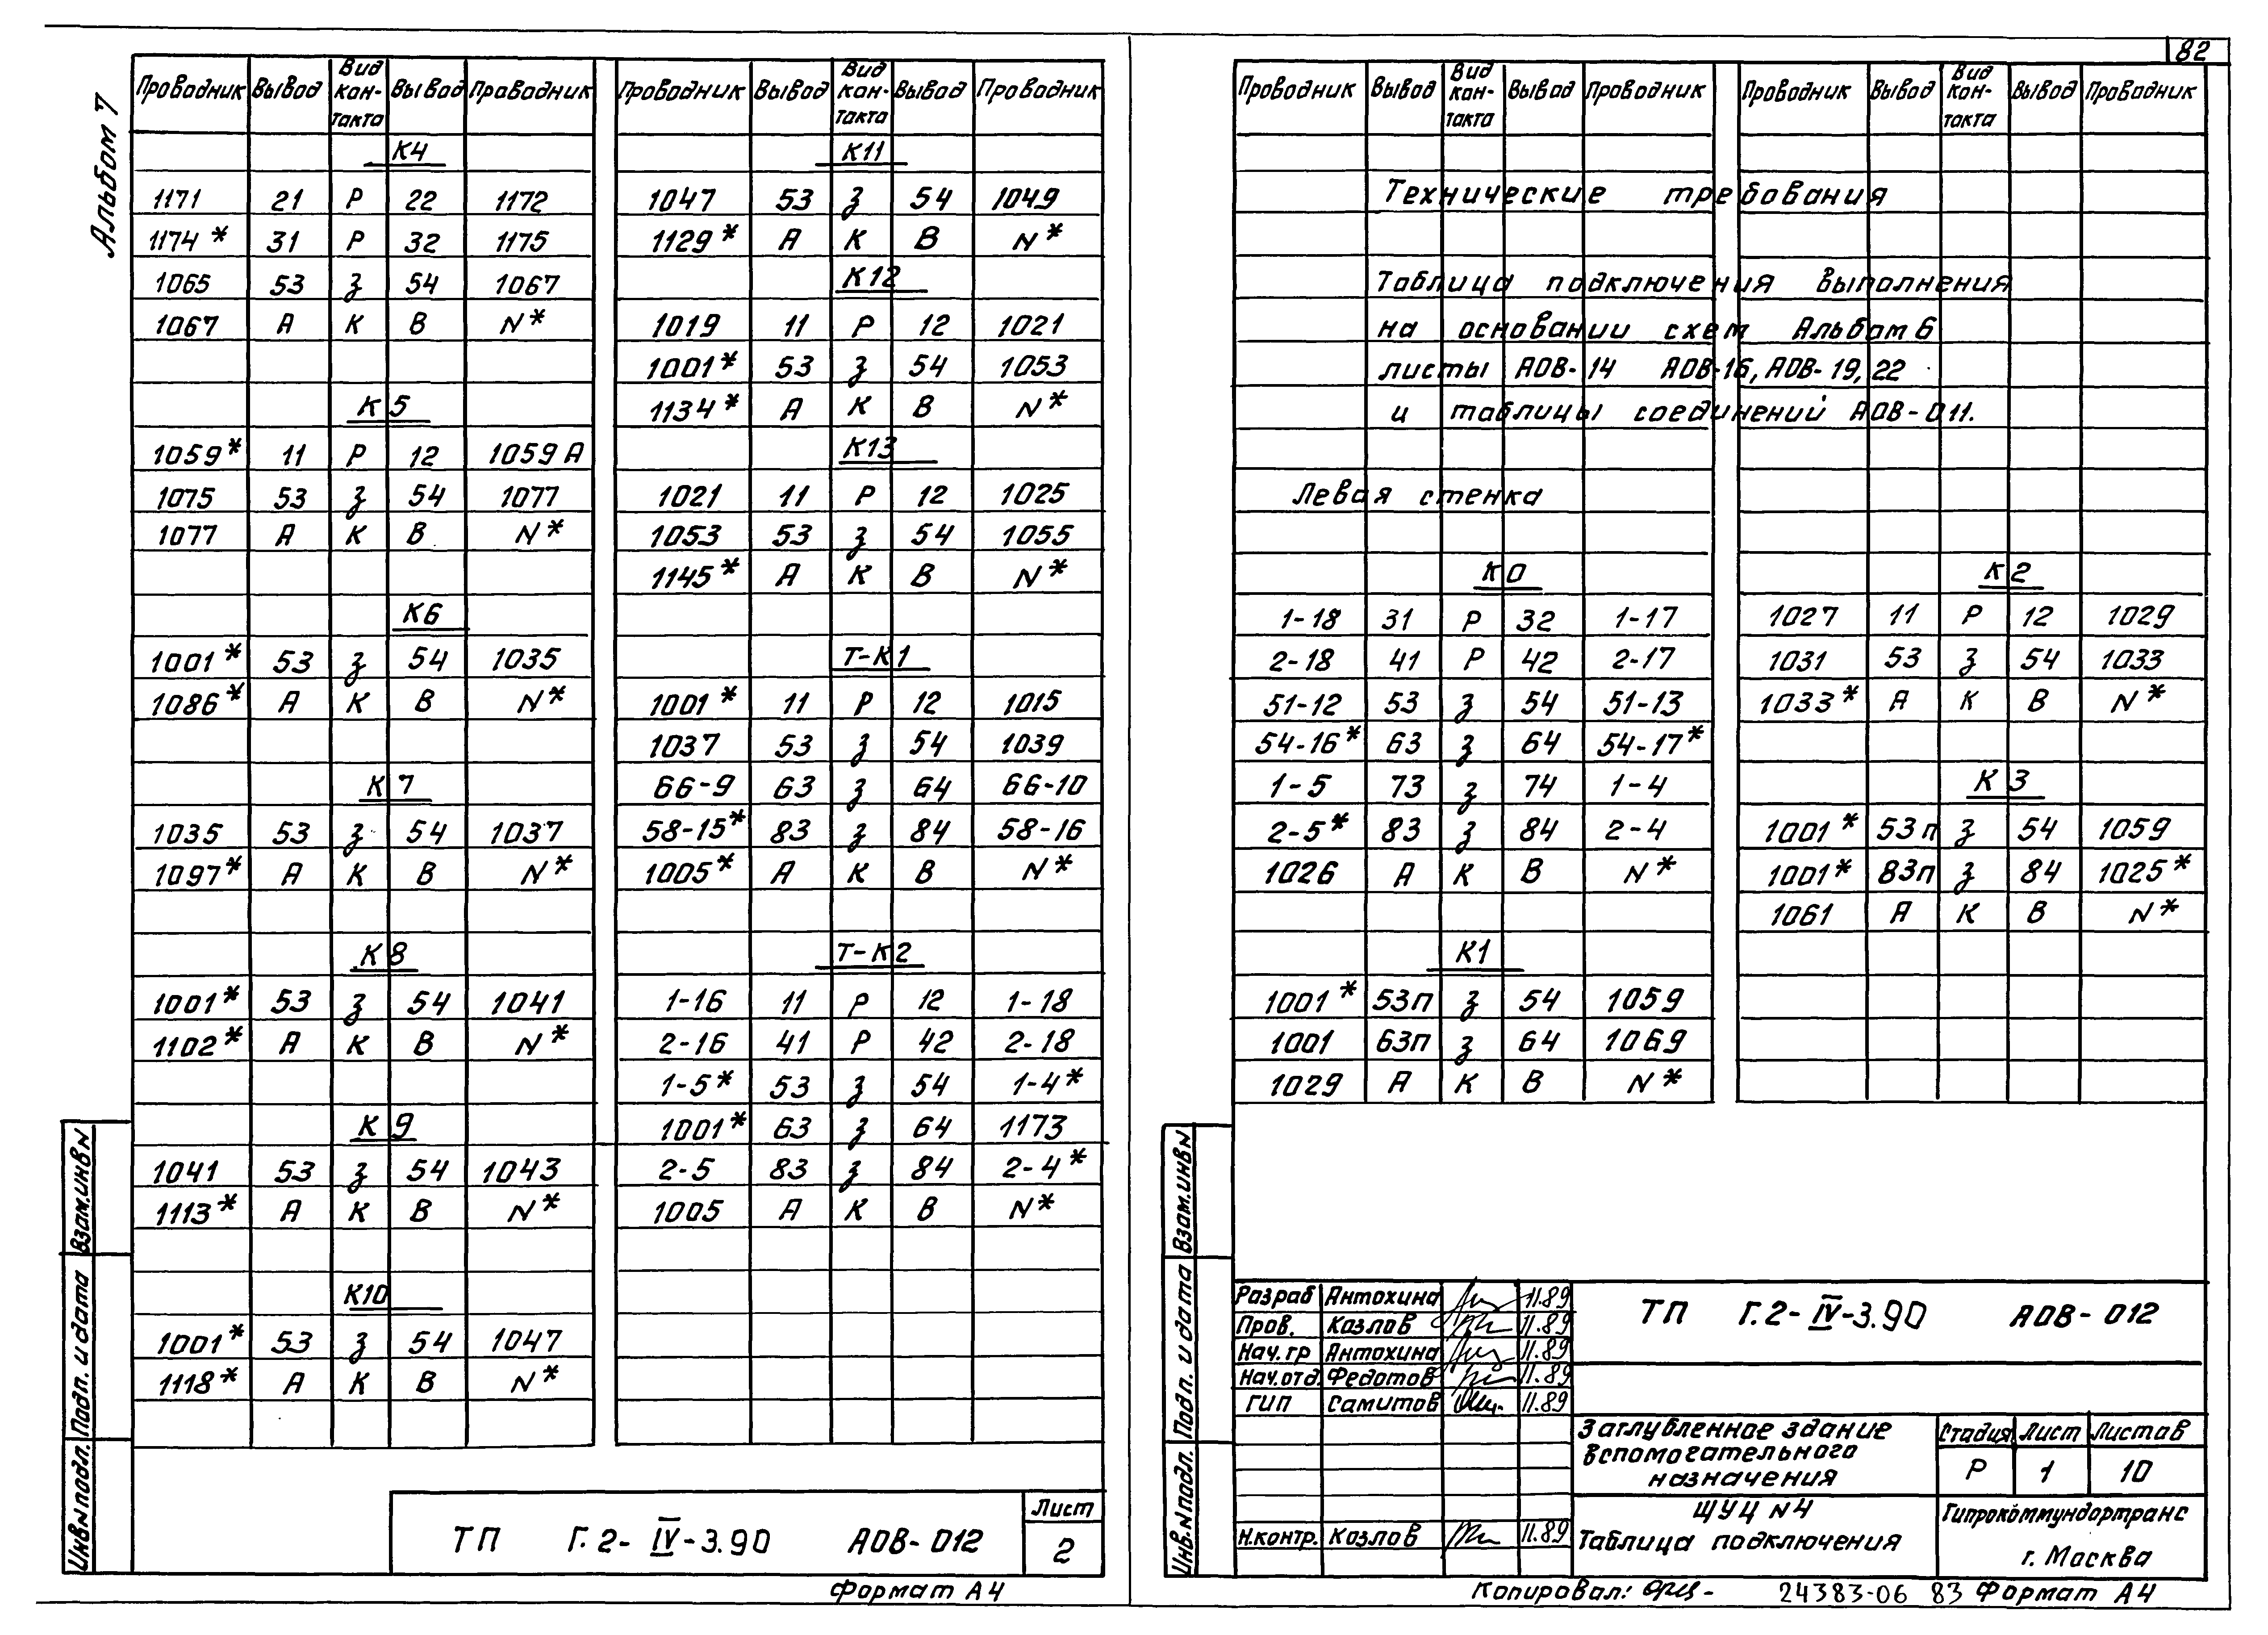 82
Альбом 7
Проводник Вывод Вид кон-такта Вывод Проводник
К4
1171 21 Р 22 1172
1174* 31 Р 32 1175
1065 53 З 54 1067
1067 А К В N*
К5
1059* 11 Р 12 1059А
1075 53 З 54 1077
1077 А К В N*
К6
1001* 53 З 54 1035
1086* А К В N*
К7
1035 53 З 54 1037
1097* А К В N*
К8
1001* 53 З 54 1041
1102* А К В N*
К9
1041 53 З 54 1043
1113* А К В N*
К10
1001* 53 З 54 1047
1118* А К В N*
Проводник Вывод Вид кон-такта Вывод Проводник
К11
1047 53 З 54 1049
1129* А К В N*
К12
1019 11 Р 12 1021
1001* 53 З 54 1053
1134* А К В N*
К13
1021 11 Р 12 1025
1053 53 З 54 1055
1145* А К В N*
Т-К1
1001* 11 Р 12 1015
1037 53 З 54 1039
66-9 63 З 64 66-10
58-15* 83 З 84 58-16
1005* А К В N*
Т-К2
1-16 11 Р 12 1-18
2-16 41 Р 42 2-18
1-5* 53 З 54 1-4*
1001* 63 З 64 1173
2-5 83 З 84 2-4*
1005 А К В N*
Взам.инв N
Подп. и дата
Инв N подл.
ТП Г.2-IV-3.90 АОВ-012
Лист
2
Формат А4
Проводник Вывод Вид кон-такта Вывод Проводник
Проводник Вывод Вид кон-такта Вывод Проводник
Технические требования
Таблица подключения выполнения
на основании схем Альбом 6
листы АОВ-14 АОВ-16, АОВ-19, 22
и таблицы соединений АОВ-011.
Левая стенка
К0
1-18 31 Р 32 1-17
2-18 41 Р 42 2-17
51-12 53 З 54 51-13
54-16* 63 З 64 54-17*
1-5 73 З 74 1-4
2-5* 83 З 84 2-4
1026 А К В N*
К1
1001* 53п З 54 1059
1001 63п З 64 1069
1029 А К В N*
К2
1027 11 Р 12 1029
1031 53 З 54 1033
1033* А К В N*
К3
1001* 53п З 54 1059
1001* 83п З 84 1025*
1061 А К В N*
Взам.инв N
Подп. и дата
Инв. N подл.
Разраб Антохина 11.89
Пров. Козлов 11.89
Нач.гр Антохина 11.89
Нач.отд. Федотов 11.89
ГИП Самитов 11.89
Н.контр. Козлов 11.89
ТП Г.2-IV-3.90 АОВ-012
Заглубленное здание
вспомогательного
назначения
Стадия Лист Листов
Р 1 10
ЩУЦ N4
Таблица подключения
Гипрокоммундортранс
г. Москва
Копировал: 24383-06 83 Формат А4